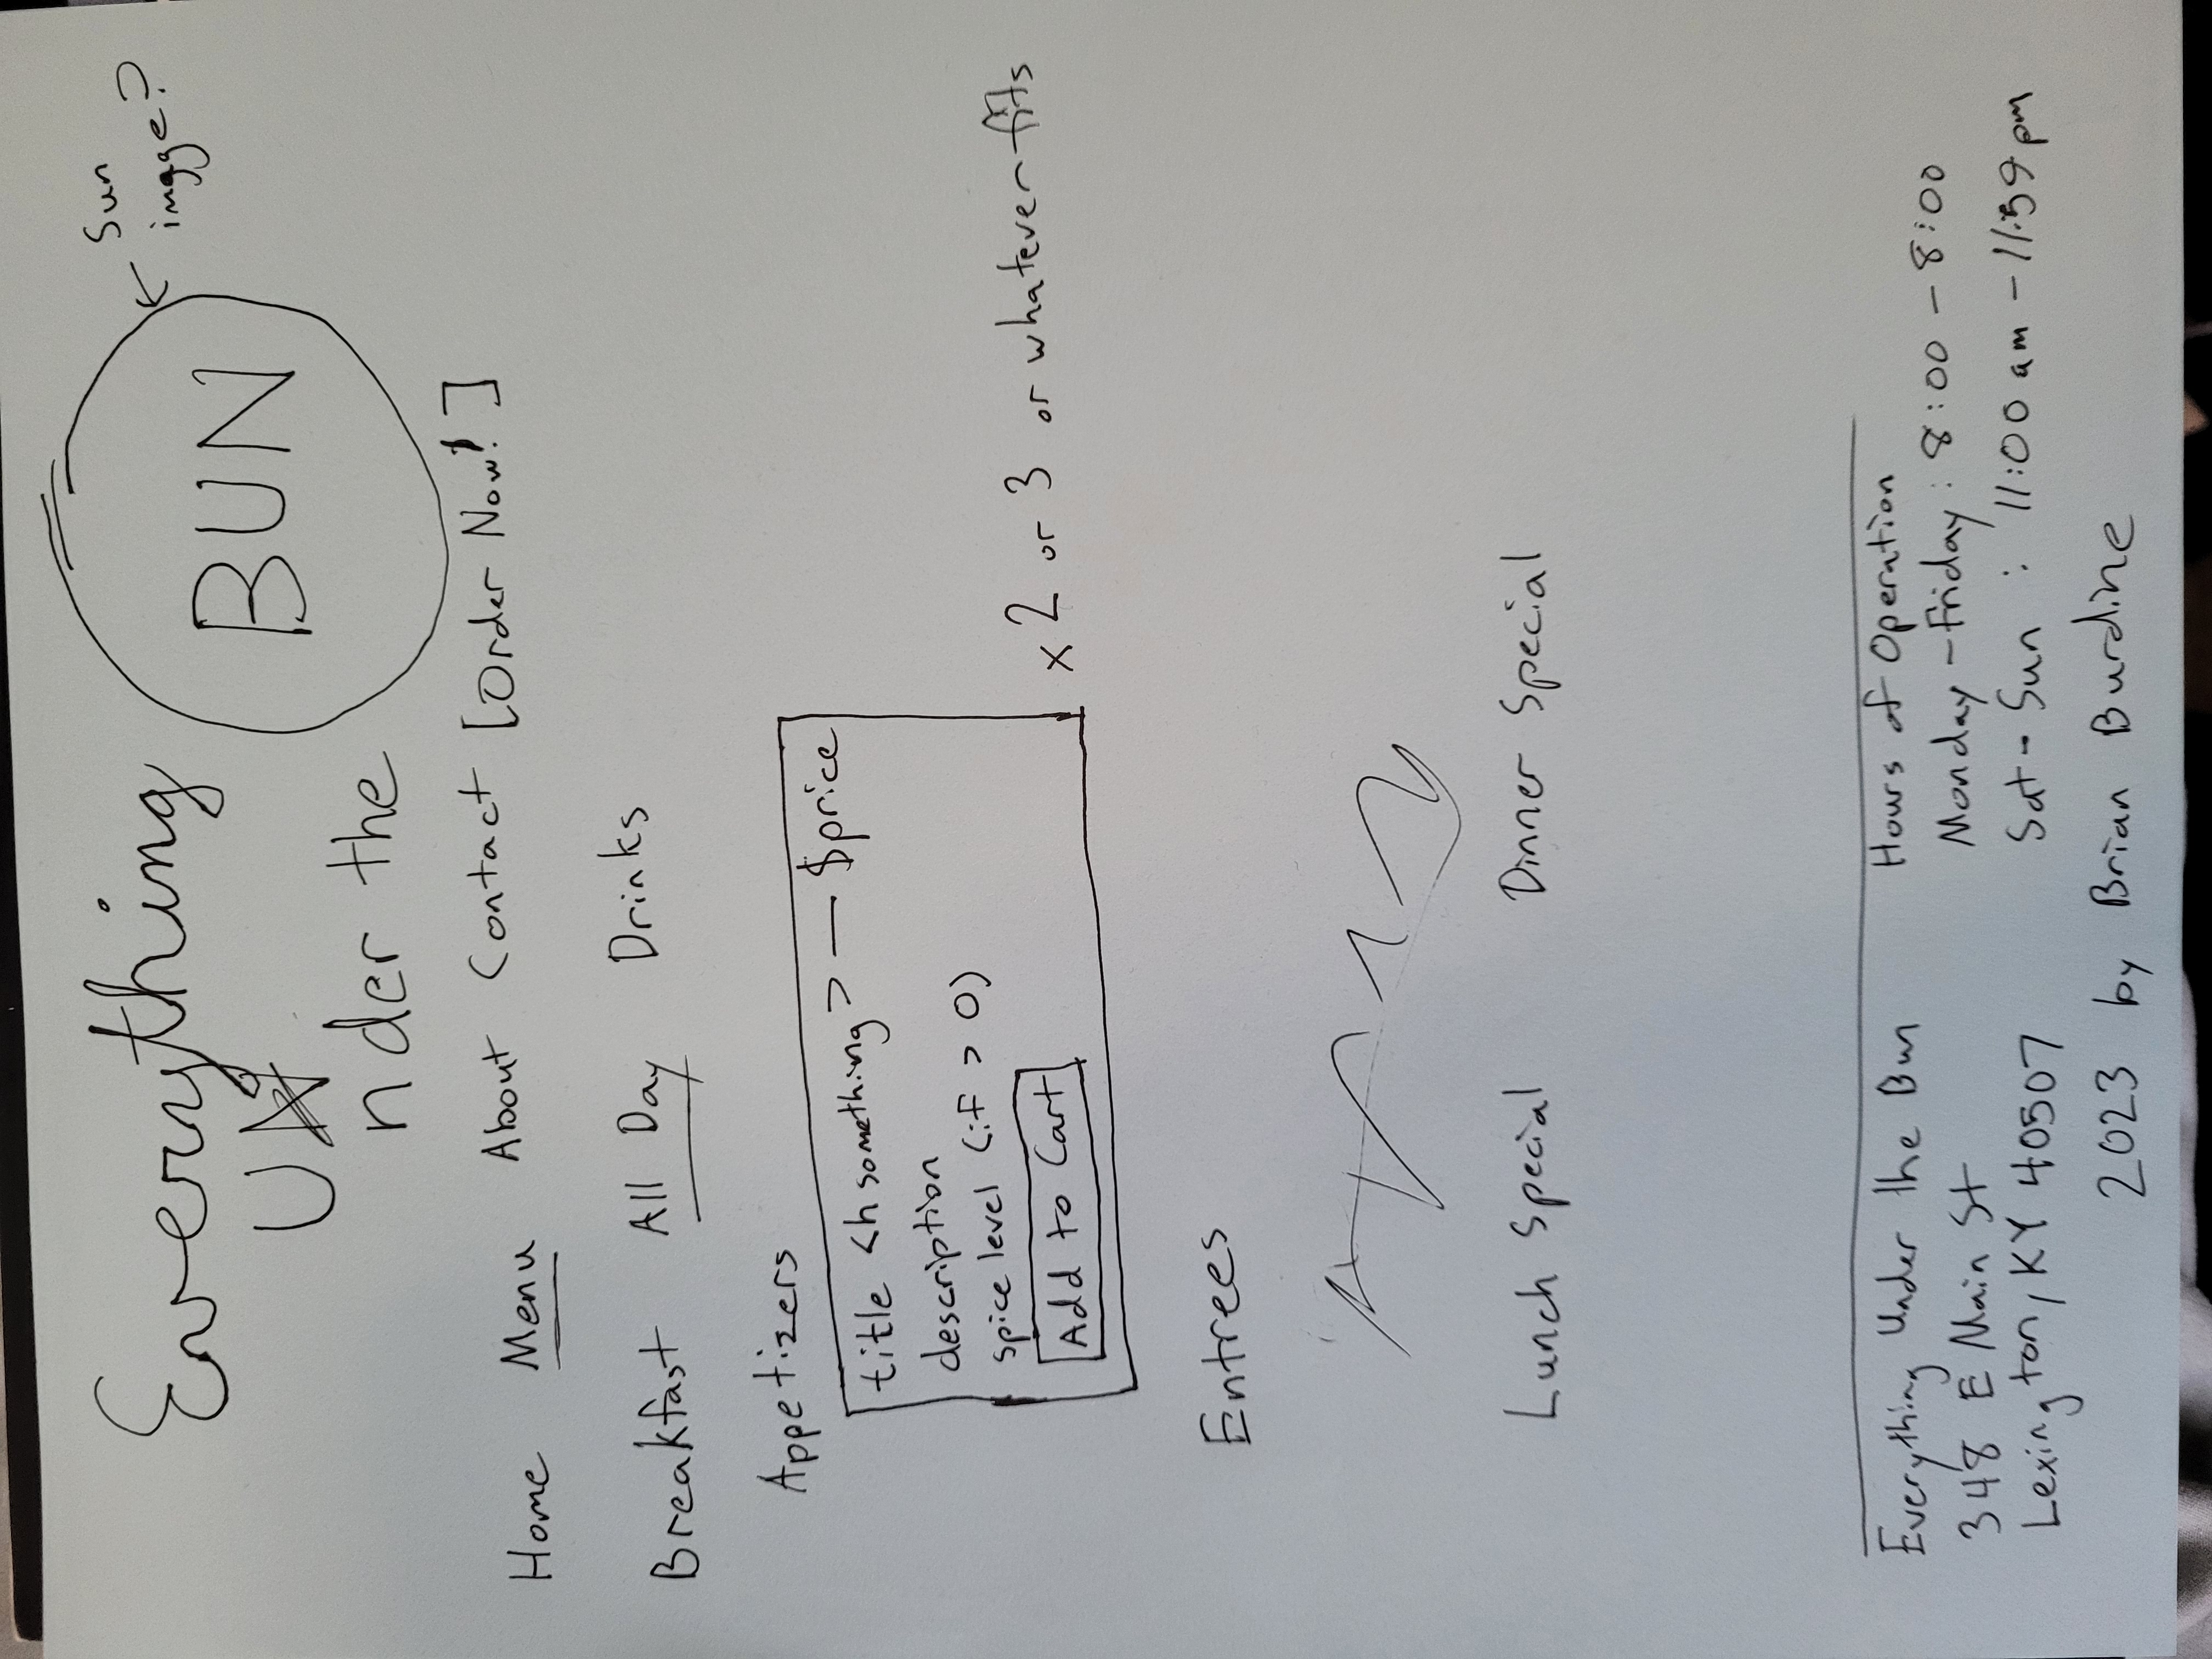 Everything
UN
nder the
BUN
Sun
image?
Home Menu About Contact [Order Now!]
Breakfast All Day Drinks
Appetizers
title <h something> — $price
description
spice level (if > 0)
Add to Cart
x 2 or 3 or whatever fits
Entrees
Lunch Special Dinner Special
Everything Under the Bun
348 E Main St
Lexington, KY 40507
Hours of Operation
Monday - Friday : 8:00 - 8:00
Sat - Sun : 11:00 am - 11:59 pm
2023 by Brian Burdine